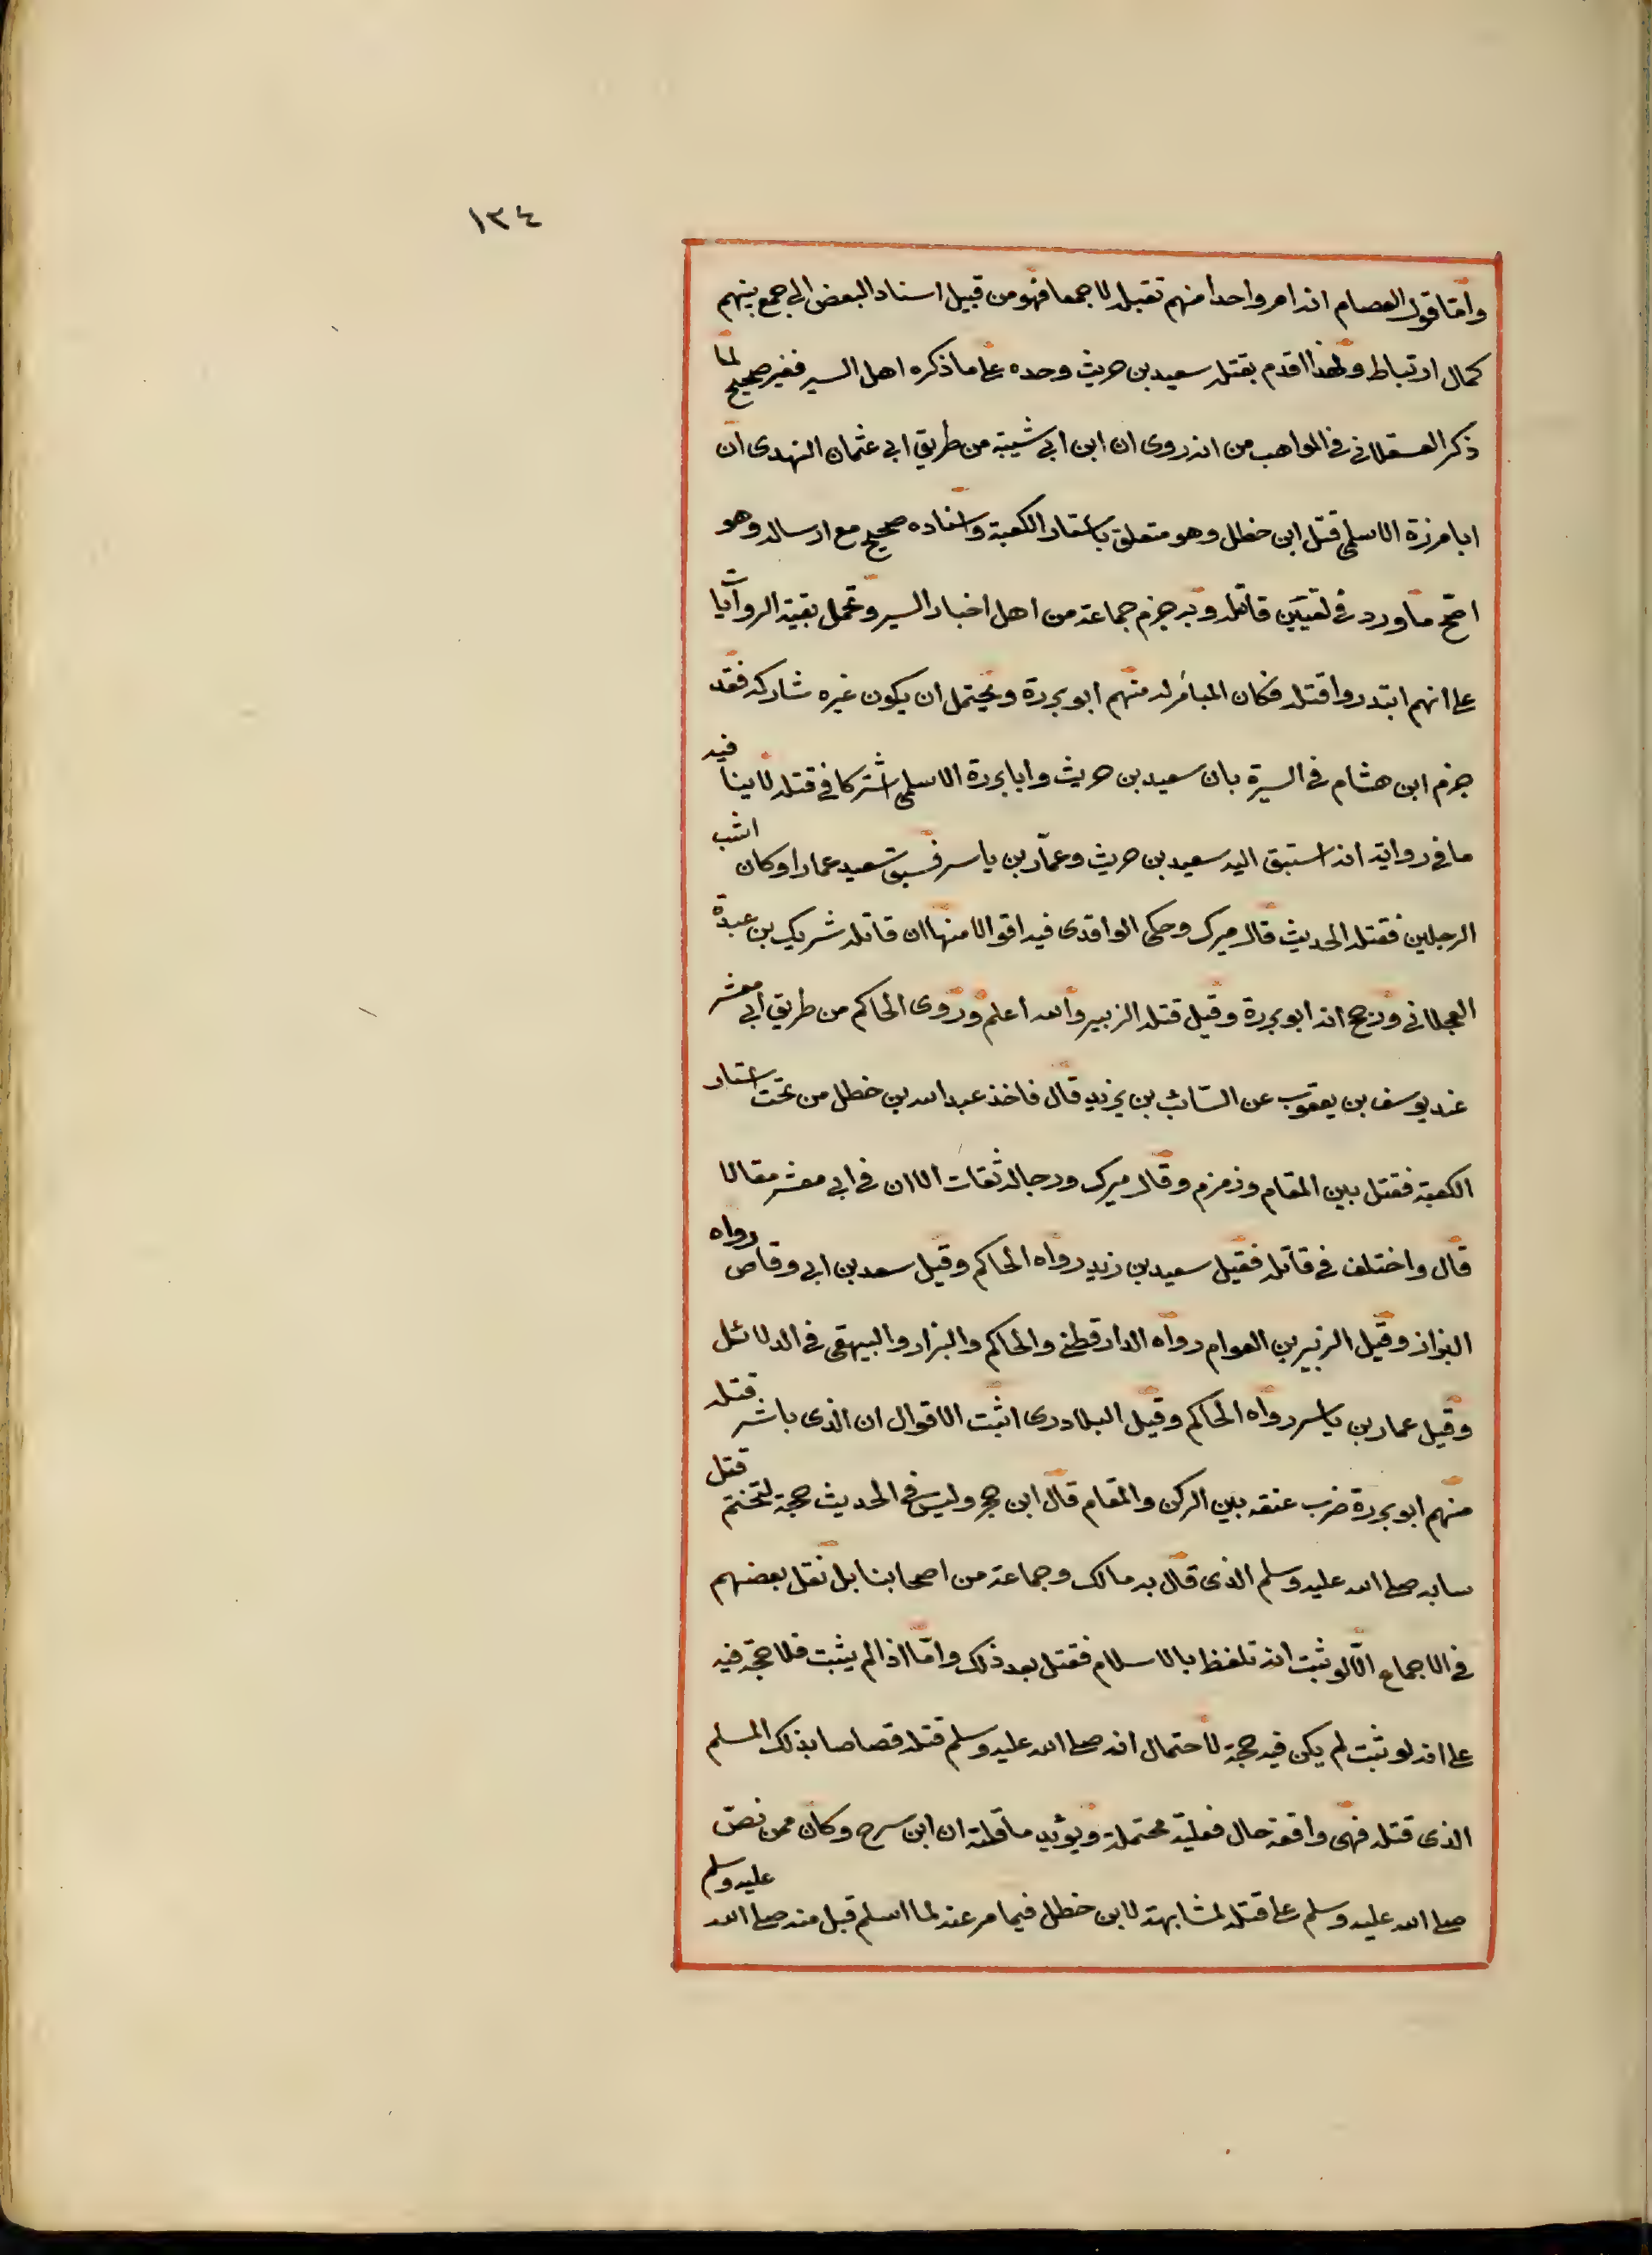 ١٣٤
وامّا قول العصام انه امر واحدا منهم تقبله لا جمعا فهو من قبيل اسناد البعض الى جمع بينهم
كمال ارتباط ولهذا اقدم بقتله سعيد بن حريث وحده على ما ذكره اهل السير فغير صحيح لما
ذكر العسقلانى فى المواهب من انه روى ان ابن ابى شيبة من طريق ابى عثمان النهدى ان
ابا مرزة الاسلمى قتل ابن خطل وهو متعلق باستار الكعبة واسناده صحيح مع ارساله وهو
اصح ما ورد فى تعيين قاتله وبه جزم جماعة من اهل اخبار السير وتحمل بقية الروايات
على انهم ابتدروا قتله فكان المباشر له منهم ابو بردة ويحتمل ان يكون غيره شاركه فقد
جزم ابن هشام فى السيرة بان سعيد بن حريث وابا بردة الاسلمى اشتركا فى قتله لا ينافيه
ما فى رواية انه استبق اليه سعيد بن حريث وعمّار بن ياسر فسبق سعيد عمارا وكان اشب
الرجلين فقتله الحديث قال ميرك وحكى الواقدى فيه اقوالا منها ان قاتله شريك بن عبدة
العجلانى ورجح انه ابو بردة وقيل قتله الزبير والله اعلم وروى الحاكم من طريق ابى معشر
عند يوسف بن يعقوب عن السّائب بن يزيد قال فاخذ عبد الله بن خطل من تحت استار
الكعبة فقتل بين المقام وزمزم وقال ميرك ورجاله ثقات الا ان فى ابى معشر مقالا
قال واختلف فى قاتله فقيل سعيد بن زيد رواه الحاكم وقيل سعد بن ابى وقاص رواه
البزاز وقيل الزبير بن العوام رواه الدارقطنى والحاكم والبزار والبيهقى فى الدلائل
وقيل عمار بن ياسر رواه الحاكم وقيل البلادرى اثبت الاقوال ان الذى باشر قتله
منهم ابو بردة ضرب عنقه بين الركن والمقام قال ابن حجر وليس فى الحديث حجة لتحتم قتل
سابه صلى الله عليه وسلم الذى قال به مالك وجماعة من اصحابنا بل نقل بعضهم
فى الاجماع الّا لو ثبت انه تلفظ بالاسلام فقتل بعد ذلك وامّا اذا لم يثبت فلا حجة فيه
على انه لو ثبت لم يكن فيه حجة لاحتمال انه صلى الله عليه وسلم قتله قصاصا بذلك المسلم
الذى قتله فهى واقعة حال فعلية محتملة ويؤيد ما قلته ان ابن سرح وكان ممن نصّ
صلى الله عليه وسلم على قتله لمشابهته لابن خطل فيما مر عنه لما اسلم قبل منه صلى الله عليه وسلم